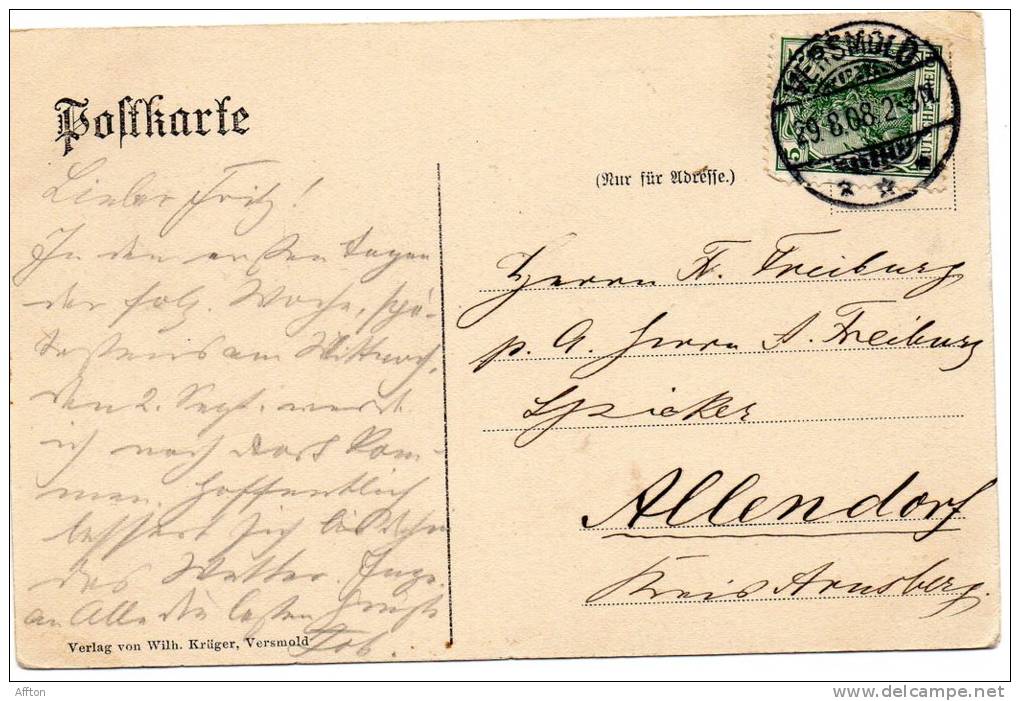 Postkarte
Lieber Fritz!
In den ersten Tagen
der folg. Woche, spä-
testens am Mittwoch,
den 2. Sept. werde
ich nach dort kom-
men. Hoffentlich
bessert sich bis dahin
das Wetter.
an Alle die besten Grüße
Verlag von Wilh. Krüger, Versmold
(Nur für Adresse.)
VERSMOLD
29.8.08.2-3N.
5
DEUTSCHES REICH
Herrn F. Freiburg
p. A. Herrn A. Freiburg
Allendorf
Kreis Arnsberg.
Affton
delcampe.net